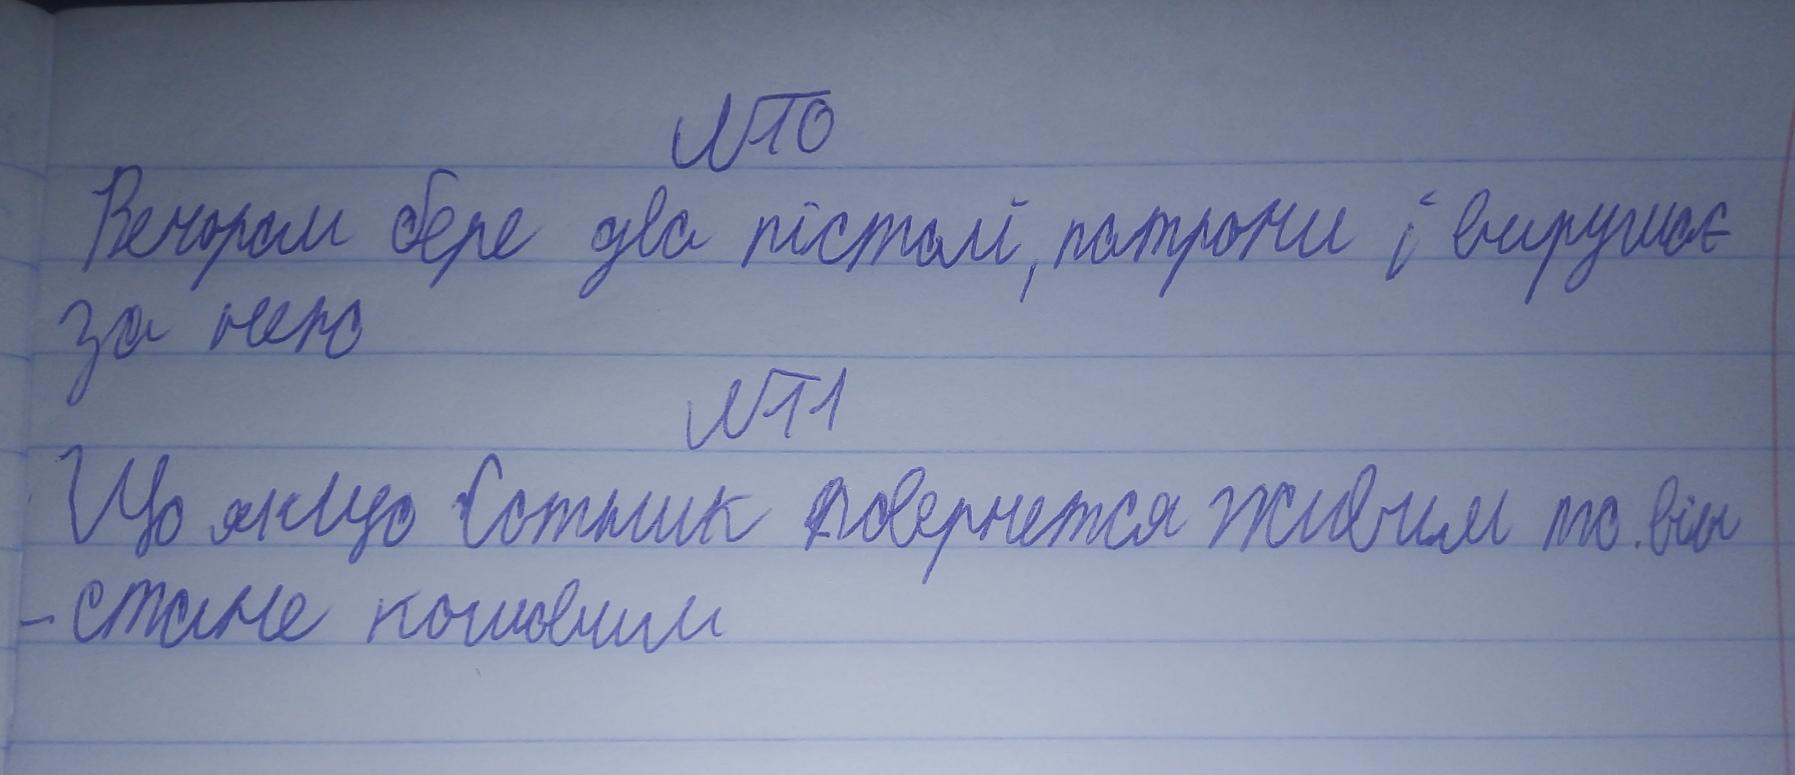 №10
Вечорам бере два пістолі, патрони і вирушає
за нею
№11
Що якщо Сотник повернется живим то він
- стане кошовим